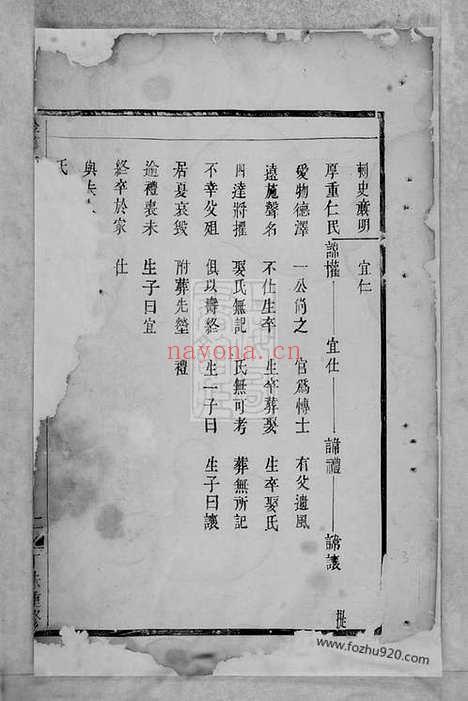 刺史廉明　宜仁
厚重仁民　諱懽　宜仕　諱禮　諱讓
愛物德澤　一公尚之　官為博士　有父遺風
遠施聲名　不仕生卒　生卒葬娶　生卒娶氏
四達將擢　娶氏無記　氏無可考　葬無所記
不幸父殂　俱以壽終　生一子曰　生子曰讓
居憂哀毀　附葬先塋　禮
逾禮喪未　生子曰宜
終卒於家　仕
與夫
氏
nayona.cn
www.fozhu920.com